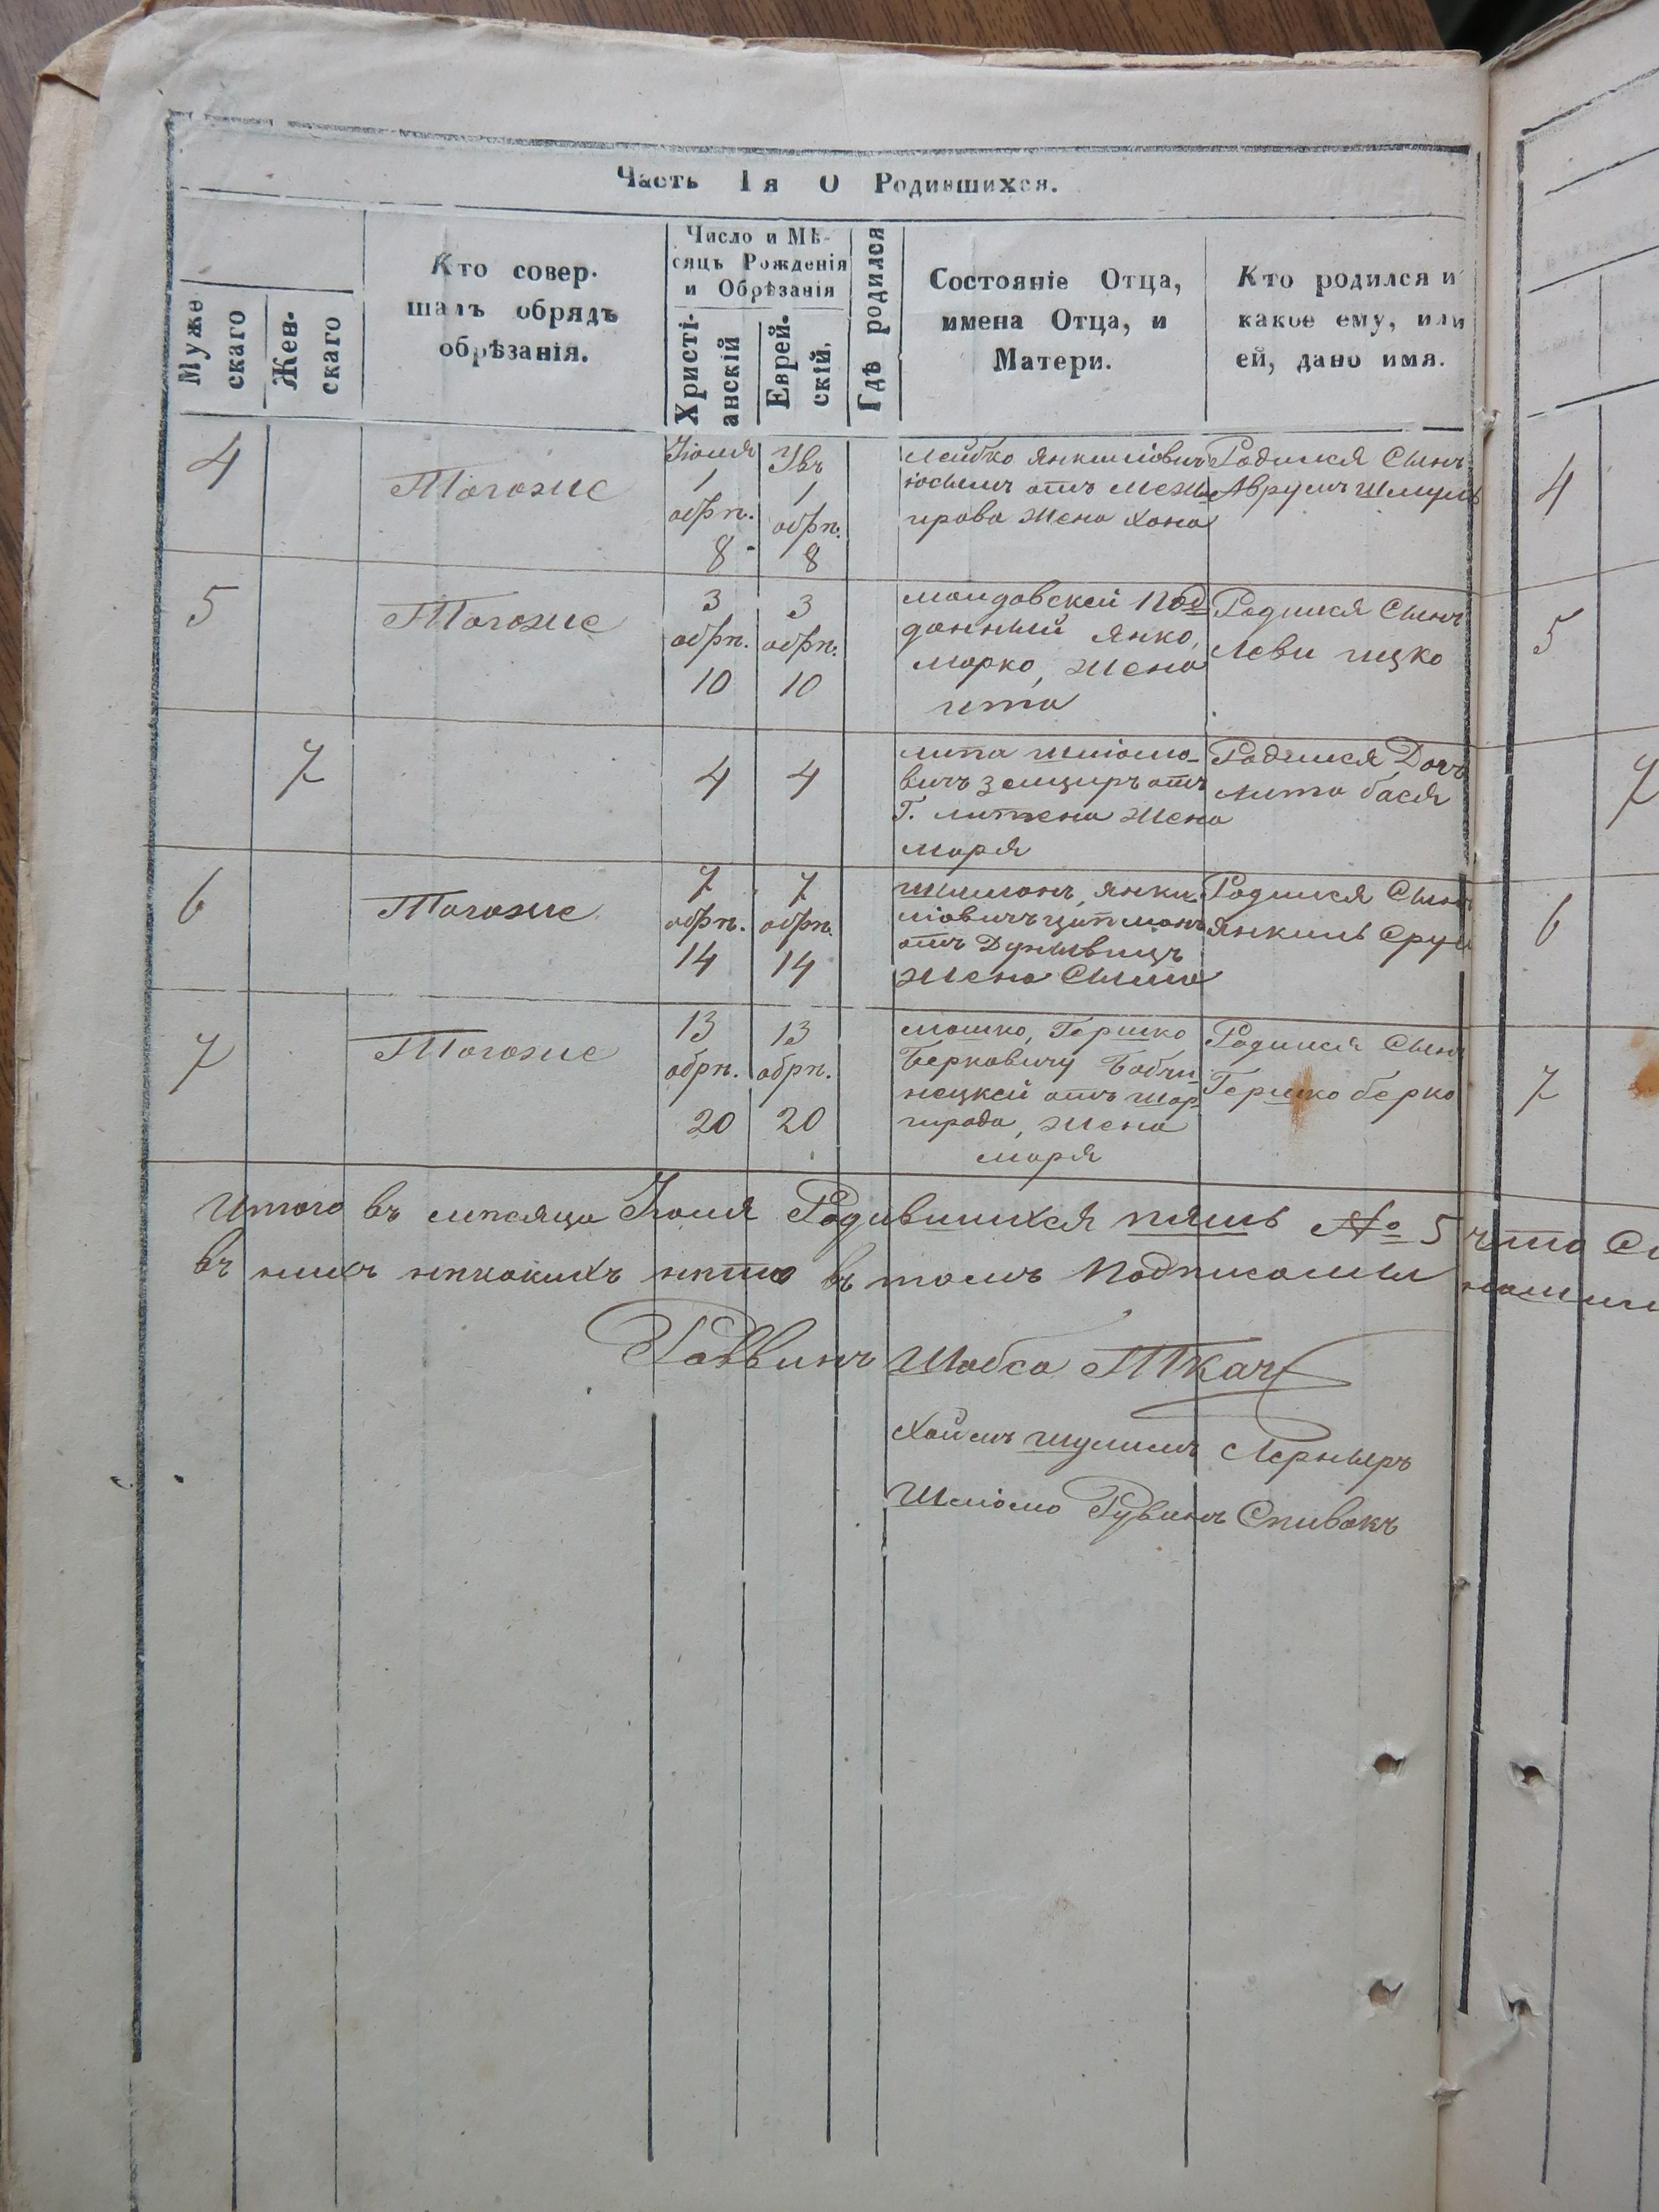 Часть Iя О Родившихся.
Муже
скаго
Жен-
скаго
Кто совер-
шалъ обрядъ
обрѣзанія.
Число и Мѣ-
сяцъ Рожденія
и Обрѣзанія
Христі-
анскій
Еврей-
скій.
Гдѣ родился
Состояніе Отца,
имена Отца, и
Матери.
Кто родился и
какое ему, или
ей, дано имя.
4
Тогоже
Іюля
1
обрп.
8
1
обрп.
8
Лейбко Янкиліовичъ
отъ Межи
прова жена Хана
Родился Сынъ
Аврумъ Шмуль
4
5
Тогоже
3
обрп.
10
3
обрп.
10
Молдовскей Под
данный Янко,
Марко, жена
Ита
Родился Сынъ
Леви Ицко
5
7
4
4
Липа Шліомо-
вичъ отъ
Г. Литена жена
Маря
Родился Дочь
бася
7
6
Тогоже
7
обрп.
14
7
обрп.
14
Шлимонъ, Янки
ліовичъ Цитманъ
отъ Дунывицъ
жена Сыма
Родился Сынъ
Янкиль Срул
6
7
Тогоже
13
обрп.
20
13
обрп.
20
Мошко, Гершко
Берковичу Бабчи-
нецкей отъ Шар-
города, жена
Маря
Родился Сынъ
Гершко берко
7
Итого въ мпсяца Іюля Родившихся пять № 5 что
въ нихъ нпкокихъ нпто въ томъ Подписомы
Раввинъ Шабса Ткачъ
Хаимъ Шулимъ Лерныръ
Шліомо Рувинъ Спивакъ